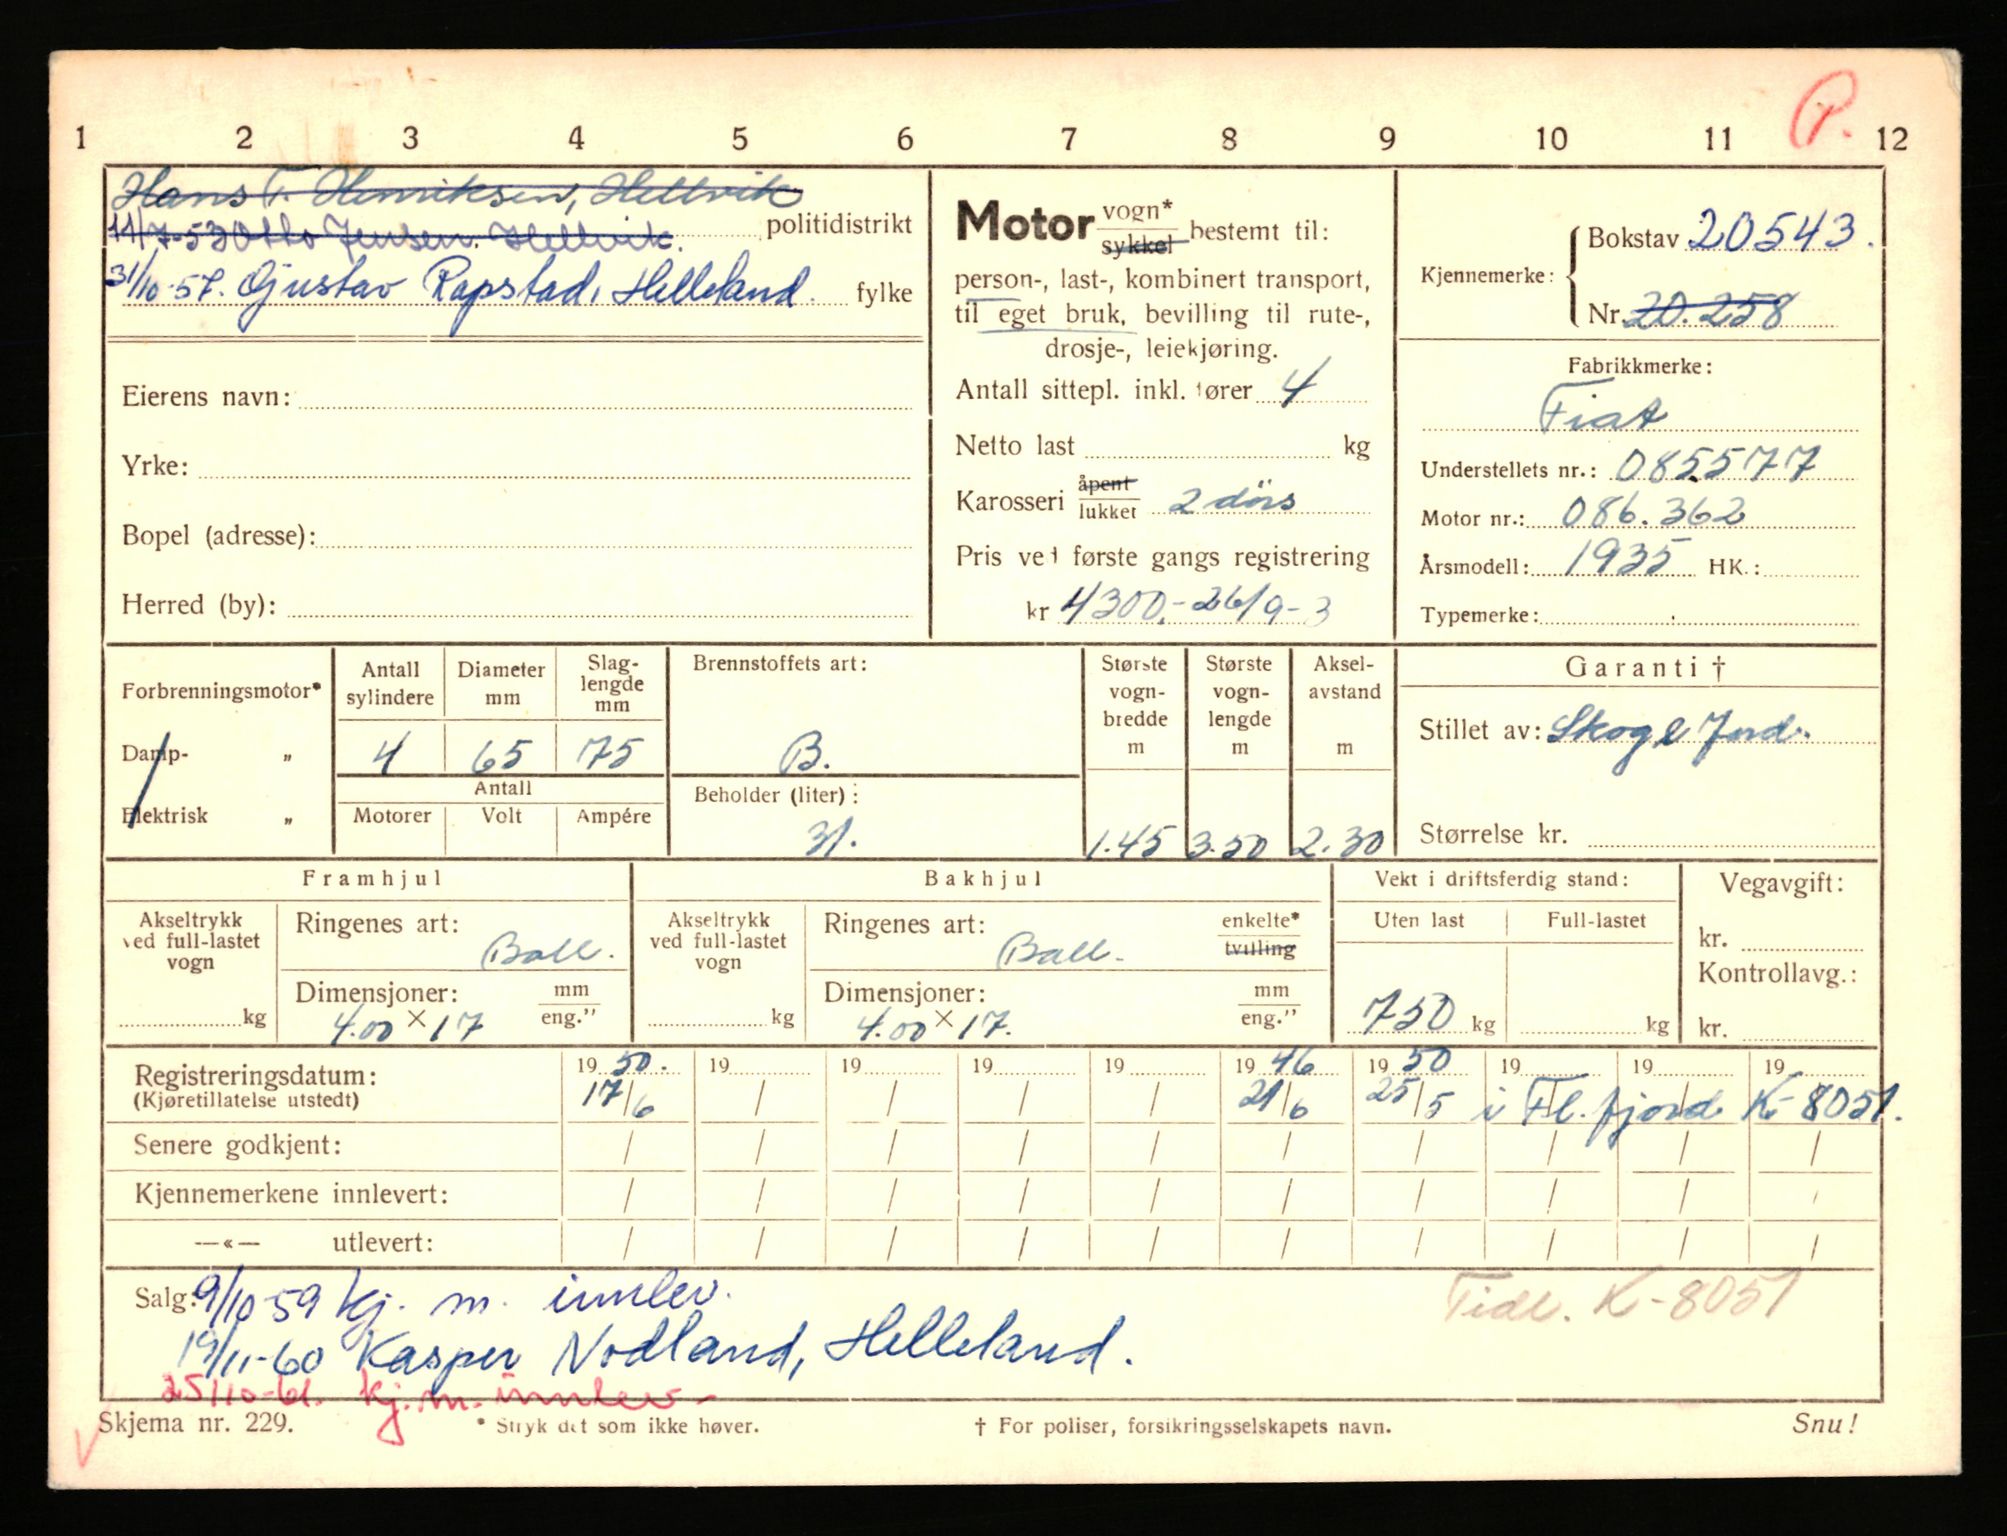 P.
1 2 3 4 5 6 7 8 9 10 11 12
Hans T. Henriksen, Hellvik
11/7-53 Otto Jensen. Hellvik. politidistrikt
31/10-57. Gjustav Rapstad, Helleland. fylke
Eierens navn:
Yrke:
Bopel (adresse):
Herred (by):
Motor vogn* sykkel bestemt til:
person-, last-, kombinert transport,
til eget bruk, bevilling til rute-,
drosje-, leiekjøring.
Antall sittepl. inkl. fører 4
Netto last kg
Karosseri åpent lukket 2 dörs
Pris ved første gangs registrering
kr 4300.- 26/9-3
Kjennemerke: Bokstav 20543.
Nr. 20.258
Fabrikkmerke:
Fiat
Understellets nr.: 085577
Motor nr.: 086.362
Årsmodell: 1935 HK.:
Typemerke:
Forbrenningsmotor*
Damp- „
Elektrisk „
Antall sylindere Diameter mm Slag-lengde mm
4 65 75
Antall
Motorer Volt Ampére
Brennstoffets art:
B.
Beholder (liter):
31.
Største vogn-bredde m Største vogn-lengde m Aksel-avstand m
1.45 3.50 2.30
Garanti †
Stillet av: Skogl Jord.
Størrelse kr.
Framhjul
Akseltrykk ved full-lastet vogn
kg
Ringenes art:
Ball.
Dimensjoner: mm eng."
4.00 × 17
Bakhjul
Akseltrykk ved full-lastet vogn
kg
Ringenes art: enkelte* tvilling
Ball.
Dimensjoner: mm eng."
4.00 × 17.
Vekt i driftsferdig stand:
Uten last Full-lastet
750 kg kg
Vegavgift:
kr.
Kontrollavg.:
kr.
Registreringsdatum: 1950. 19 19 19 19 1946 1950 19 19 19
(Kjøretillatelse utstedt) 17/6 / / / / 21/6 25/5 i Fl. fjord K-8051.
Senere godkjent: / / / / / / / / / /
Kjennemerkene innlevert: / / / / / / / / / /
—«— utlevert: / / / / / / / / / /
Salg: 9/10-59 kj. m. innlev. Tidl. K-8051
19/11-60 Kasper Nodland, Helleland.
25/10-61. kj. m. innlev.-
Skjema nr. 229. * Stryk det som ikke høver. † For poliser, forsikringsselskapets navn. Snu!